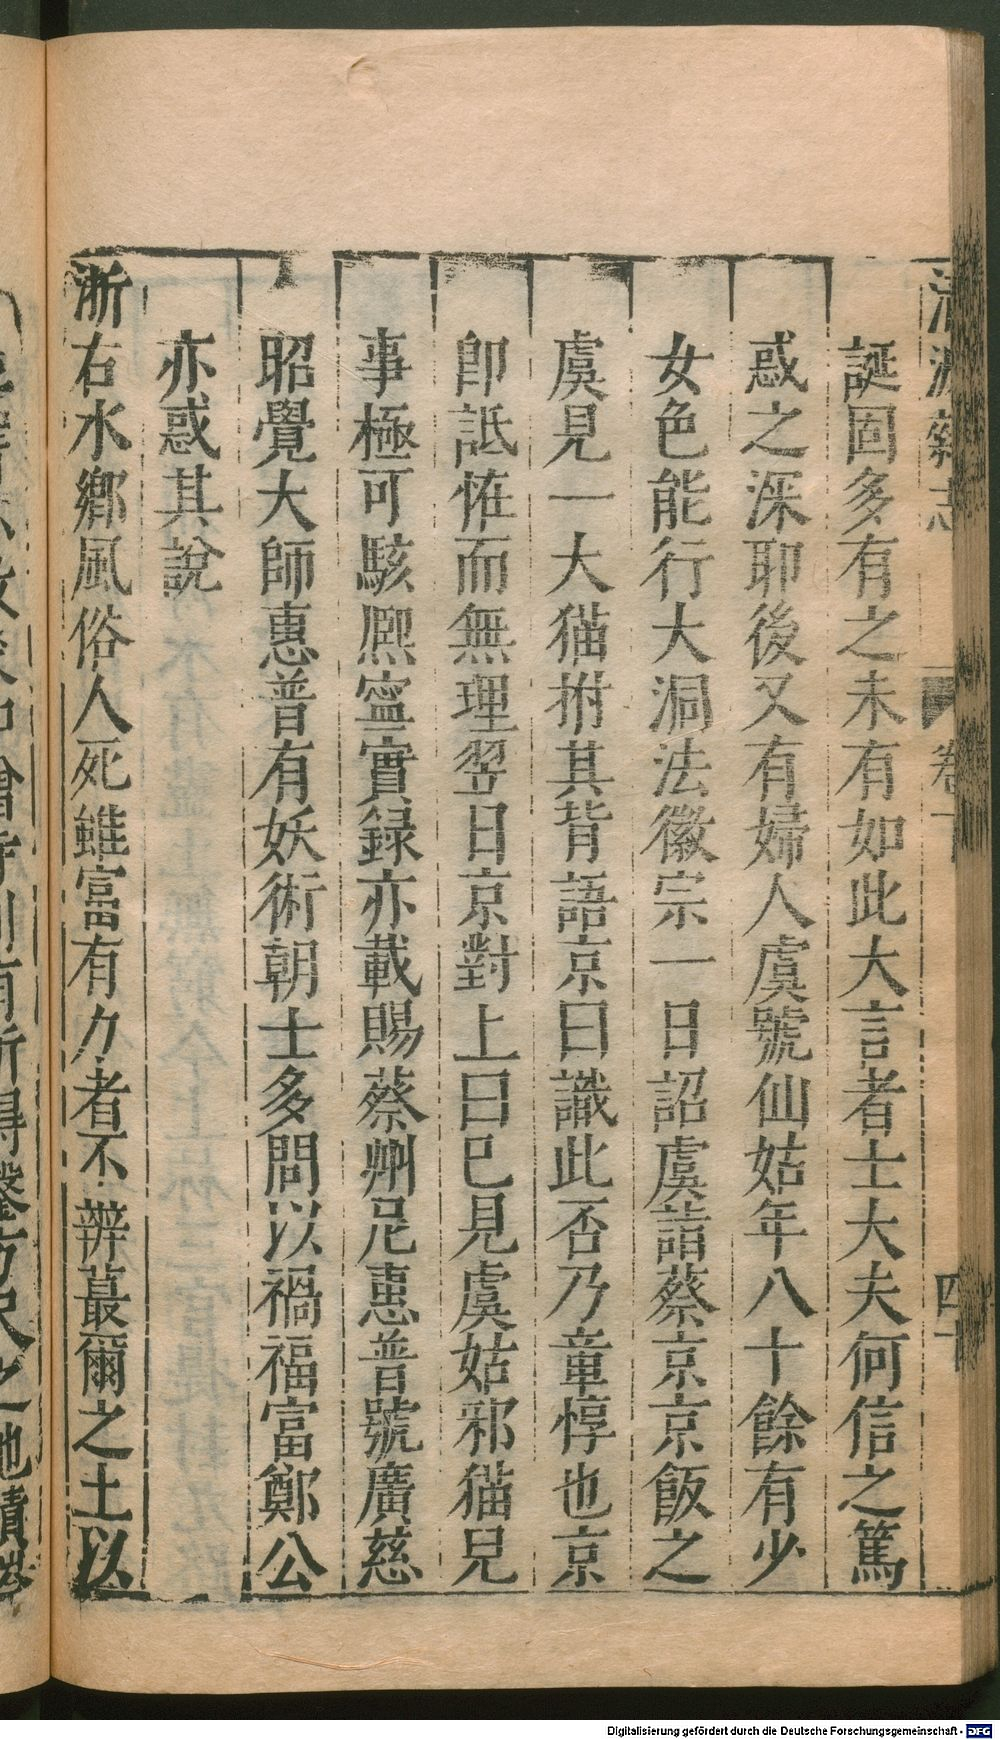 清波雜志
卷下
四十
誕固多有之未有如此大言者士大夫何信之篤
惑之深耶後又有婦人虞號仙姑年八十餘有少
女色能行大洞法徽宗一日詔虞詣蔡京京飯之
虞見一大猫拊其背語京曰識此否乃章惇也京
即詆恠而無理翌日京對上曰已見虞姑邪猫兒
事極可駭熈寧實録亦載賜蔡州尼惠普號廣慈
昭覺大師惠普有妖術朝士多問以禍福富鄭公
亦惑其說
浙右水鄉風俗人死雖富有力者不辨蕞爾之土以
Digitalisierung gefördert durch die Deutsche Forschungsgemeinschaft - DFG